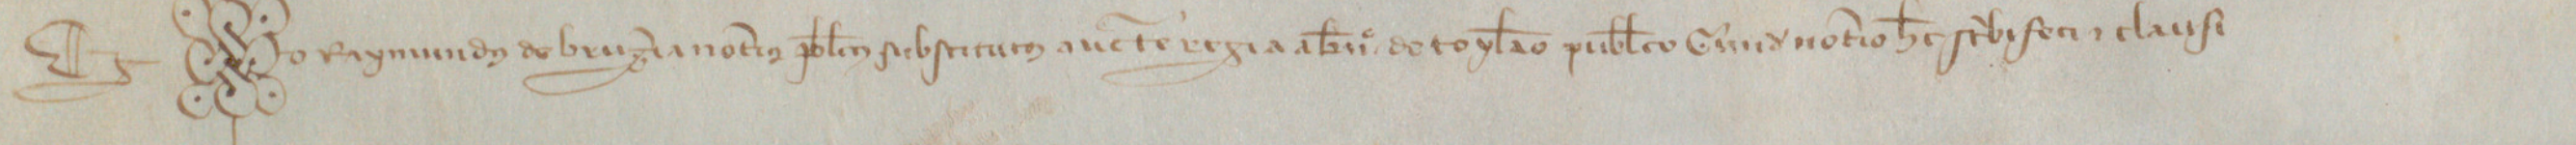 Et Ego Raymundus de brugaria notarius publicus substitutus auctoritate regia a bernardo de toylano publico Gerunde notario hec scribi feci et clausi